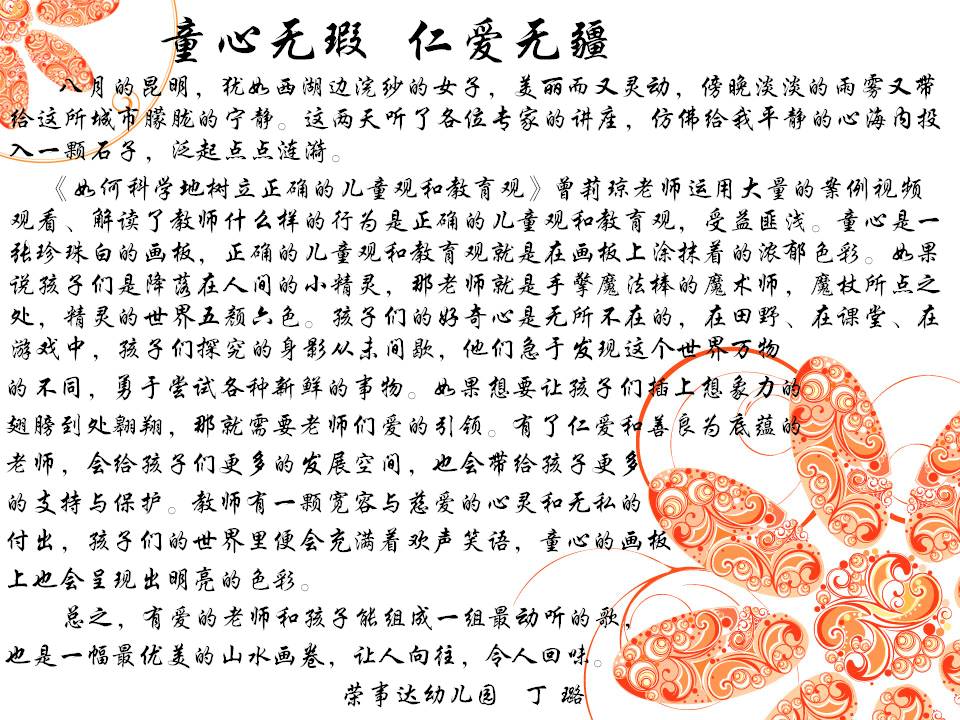 童心无瑕 仁爱无疆
八月的昆明，犹如西湖边浣纱的女子，美丽而又灵动，傍晚淡淡的雨雾又带
给这所城市朦胧的宁静。这两天听了各位专家的讲座，仿佛给我平静的心海内投
入一颗石子，泛起点点涟漪。
《如何科学地树立正确的儿童观和教育观》曾莉琼老师运用大量的案例视频
观看、解读了教师什么样的行为是正确的儿童观和教育观，受益匪浅。童心是一
张珍珠白的画板，正确的儿童观和教育观就是在画板上涂抹着的浓郁色彩。如果
说孩子们是降落在人间的小精灵，那老师就是手擎魔法棒的魔术师，魔杖所点之
处，精灵的世界五颜六色。孩子们的好奇心是无所不在的，在田野、在课堂、在
游戏中，孩子们探究的身影从未间歇，他们急于发现这个世界万物
的不同，勇于尝试各种新鲜的事物。如果想要让孩子们插上想象力的
翅膀到处翱翔，那就需要老师们爱的引领。有了仁爱和善良为底蕴的
老师，会给孩子们更多的发展空间，也会带给孩子更多
的支持与保护。教师有一颗宽容与慈爱的心灵和无私的
付出，孩子们的世界里便会充满着欢声笑语，童心的画板
上也会呈现出明亮的色彩。
总之，有爱的老师和孩子能组成一组最动听的歌，
也是一幅最优美的山水画卷，让人向往，令人回味。
荣事达幼儿园 丁璐